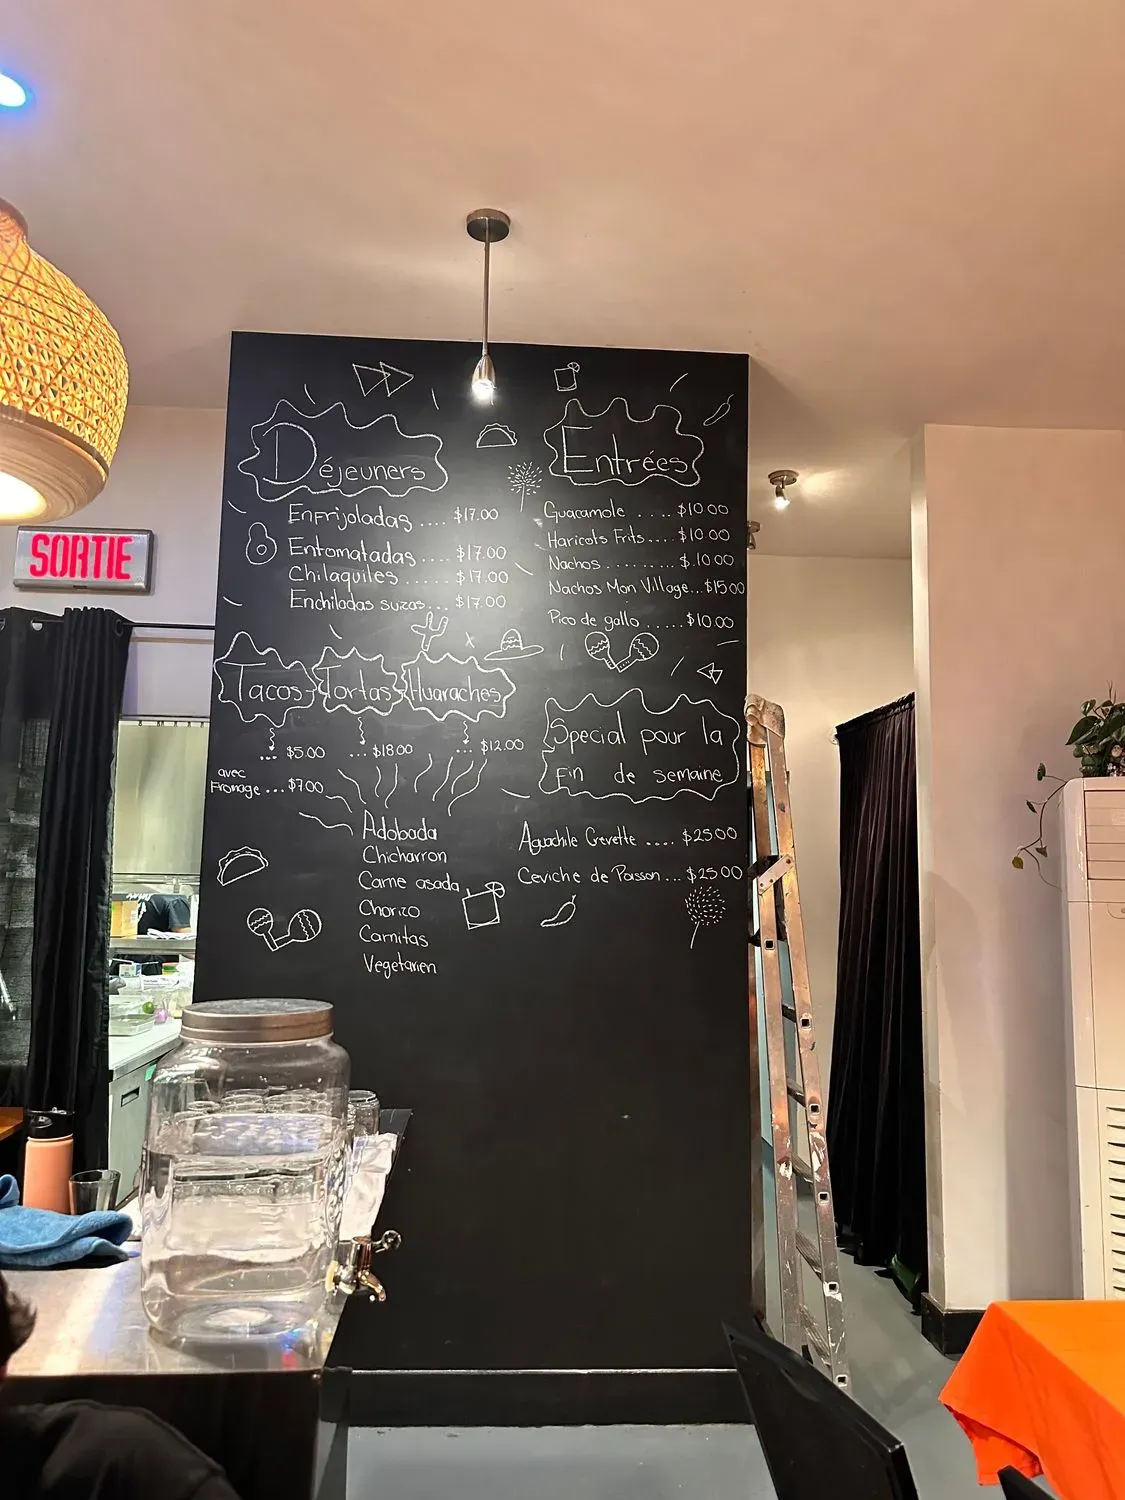 SORTIE
Déjeuners
Enfrijoladas .... $17.00
Entomatadas .... $17.00
Chilaquiles ...... $17.00
Enchiladas suizas... $17.00
Entrées
Guacamole ..... $10.00
Haricots Frits.... $10.00
Nachos ......... $.10.00
Nachos Mon Village... $15.00
Pico de gallo ..... $10.00
Tacos - Tortas - Huaraches
... $5.00 ... $18.00 ... $12.00
avec
Fromage ... $7.00
Adobada
Chicharron
Carne asada
Chorizo
Carnitas
Vegetarien
Special pour la
Fin de semaine
Aguachile Crevette .... $25.00
Ceviche de Poisson ... $25.00